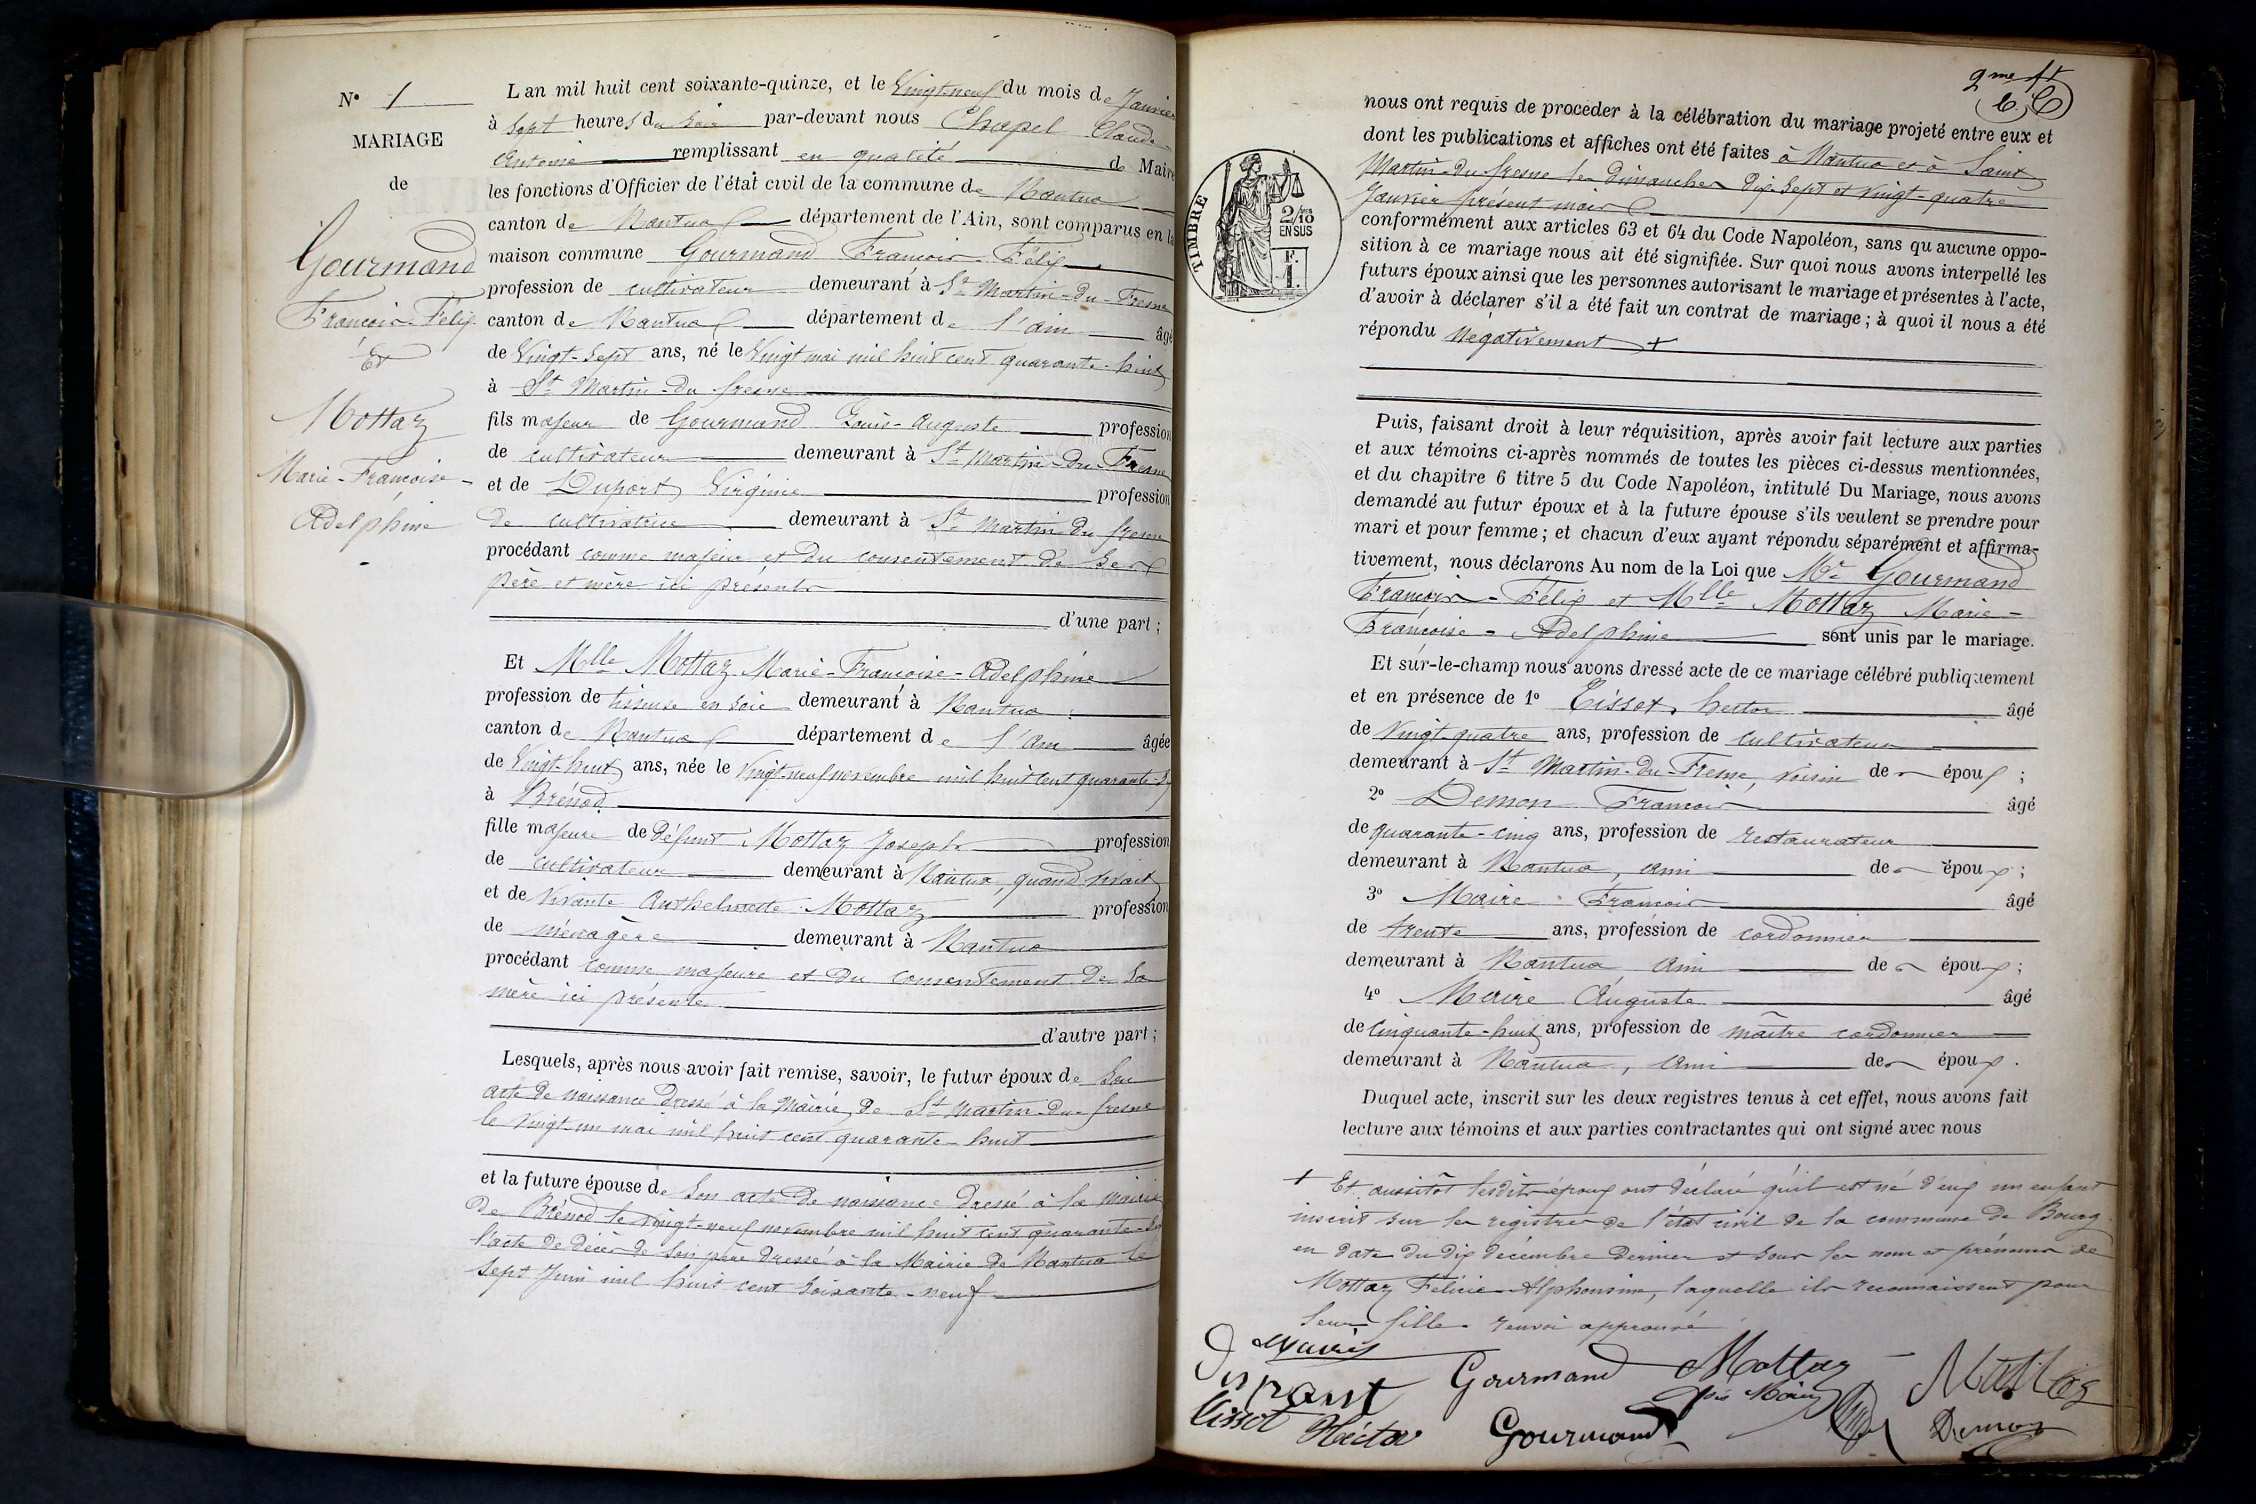 N° 1
MARIAGE
de
Gourmand
François-Félix
Et
Mottaz
Marie-Françoise-
Adelphine
L an mil huit cent soixante-quinze, et le Vingt neuf du mois de Janvier
à Sept heures du soir par-devant nous Chapel Claude-
Antoine remplissant en qualité de Maire
les fonctions d'Officier de l'état civil de la commune de Nantua
canton de Nantua département de l'Ain, sont comparus en la
maison commune Gourmand François-Félix
profession de cultivateur demeurant à St Martin-du-Fresne
canton de Nantua département de l'ain âgé
de Vingt-Sept ans, né le Vingt mai mil huit cent quarante-huit
à St Martin-du fresne
fils majeur de Gourmand Louis-Auguste profession
de cultivateur demeurant à St Martin-du-Fresne
et de Duport Virginie profession
de cultivatrice demeurant à St Martin du fresne
procédant comme majeur et du consentement de ses
père et mère ici présents
d'une part ;
Et Mlle Mottaz Marie-Françoise-Adelphine
profession de tisseuse en soie demeurant à Nantua
canton de Nantua département de l'ain âgée
de Vingt-huit ans, née le Vingt-neuf novembre mil huit cent quarante-
à Brénod
fille majeure de défunt Mottaz Joseph profession
de cultivateur demeurant à Nantua, quand vivait
et de Vivante Anthelmette Mottaz profession
de ménagère demeurant à Nantua
procédant comme majeure et du consentement de Sa
mère ici présente
d'autre part ;
Lesquels, après nous avoir fait remise, savoir, le futur époux de Son
acte de naissance dressé à la Mairie de St Martin-du-fresne
le Vingt un mai mil huit cent quarante-huit
et la future épouse de Son acte de naissance dressé à la Mairie
de Brénod le Vingt-neuf novembre mil huit cent quarante-
l'acte de décès de Son père dressé à la Mairie de Nantua le
Sept Juin mil huit cent soixante-neuf
2me ft
TIMBRE
2/10
EN SUS
F.
1.
nous ont requis de procéder à la célébration du mariage projeté entre eux et
dont les publications et affiches ont été faites à Nantua et à Saint
Martin-du-fresne les dimanches dix Sept et Vingt-quatre
Janvier présent mois
conformément aux articles 63 et 64 du Code Napoléon, sans qu aucune oppo-
sition à ce mariage nous ait été signifiée. Sur quoi nous avons interpellé les
futurs époux ainsi que les personnes autorisant le mariage et présentes à l'acte,
d'avoir à déclarer s'il a été fait un contrat de mariage ; à quoi il nous a été
répondu Négativement +
Puis, faisant droit à leur réquisition, après avoir fait lecture aux parties
et aux témoins ci-après nommés de toutes les pièces ci-dessus mentionnées,
et du chapitre 6 titre 5 du Code Napoléon, intitulé Du Mariage, nous avons
demandé au futur époux et à la future épouse s'ils veulent se prendre pour
mari et pour femme ; et chacun d'eux ayant répondu séparément et affirma-
tivement, nous déclarons Au nom de la Loi que Mr Gourmand
François-Félix et Mlle Mottaz Marie-
Françoise-Adelphine sont unis par le mariage.
Et sur-le-champ nous avons dressé acte de ce mariage célébré publiquement
et en présence de 1° Tissot, hector âgé
de Vingt-quatre ans, profession de cultivateur
demeurant à St Martin-du-Fresne, voisin des époux ;
2° Demon François âgé
de quarante-cinq ans, profession de restaurateur
demeurant à Nantua, ami des époux ;
3° Maire François âgé
de trente ans, profession de cordonnier
demeurant à Nantua ami des époux ;
4° Maire Auguste âgé
de Cinquante-huit ans, profession de maître cordonnier
demeurant à Nantua, ami des époux .
Duquel acte, inscrit sur les deux registres tenus à cet effet, nous avons fait
lecture aux témoins et aux parties contractantes qui ont signé avec nous
+ Et aussitôt lesdits époux ont déclaré qu'il est né d'eux un enfant
inscrit sur les registres de l'état civil de la commune de Bourg
en date du dix décembre dernier et sous les nom et prénoms de
Mottaz Félicie-Alphonsine, laquelle ils reconnaissent pour
leur fille. renvoi approuvé
Gourmand Mottaz Mottaz
Tissot Héctor Gourmand Demon